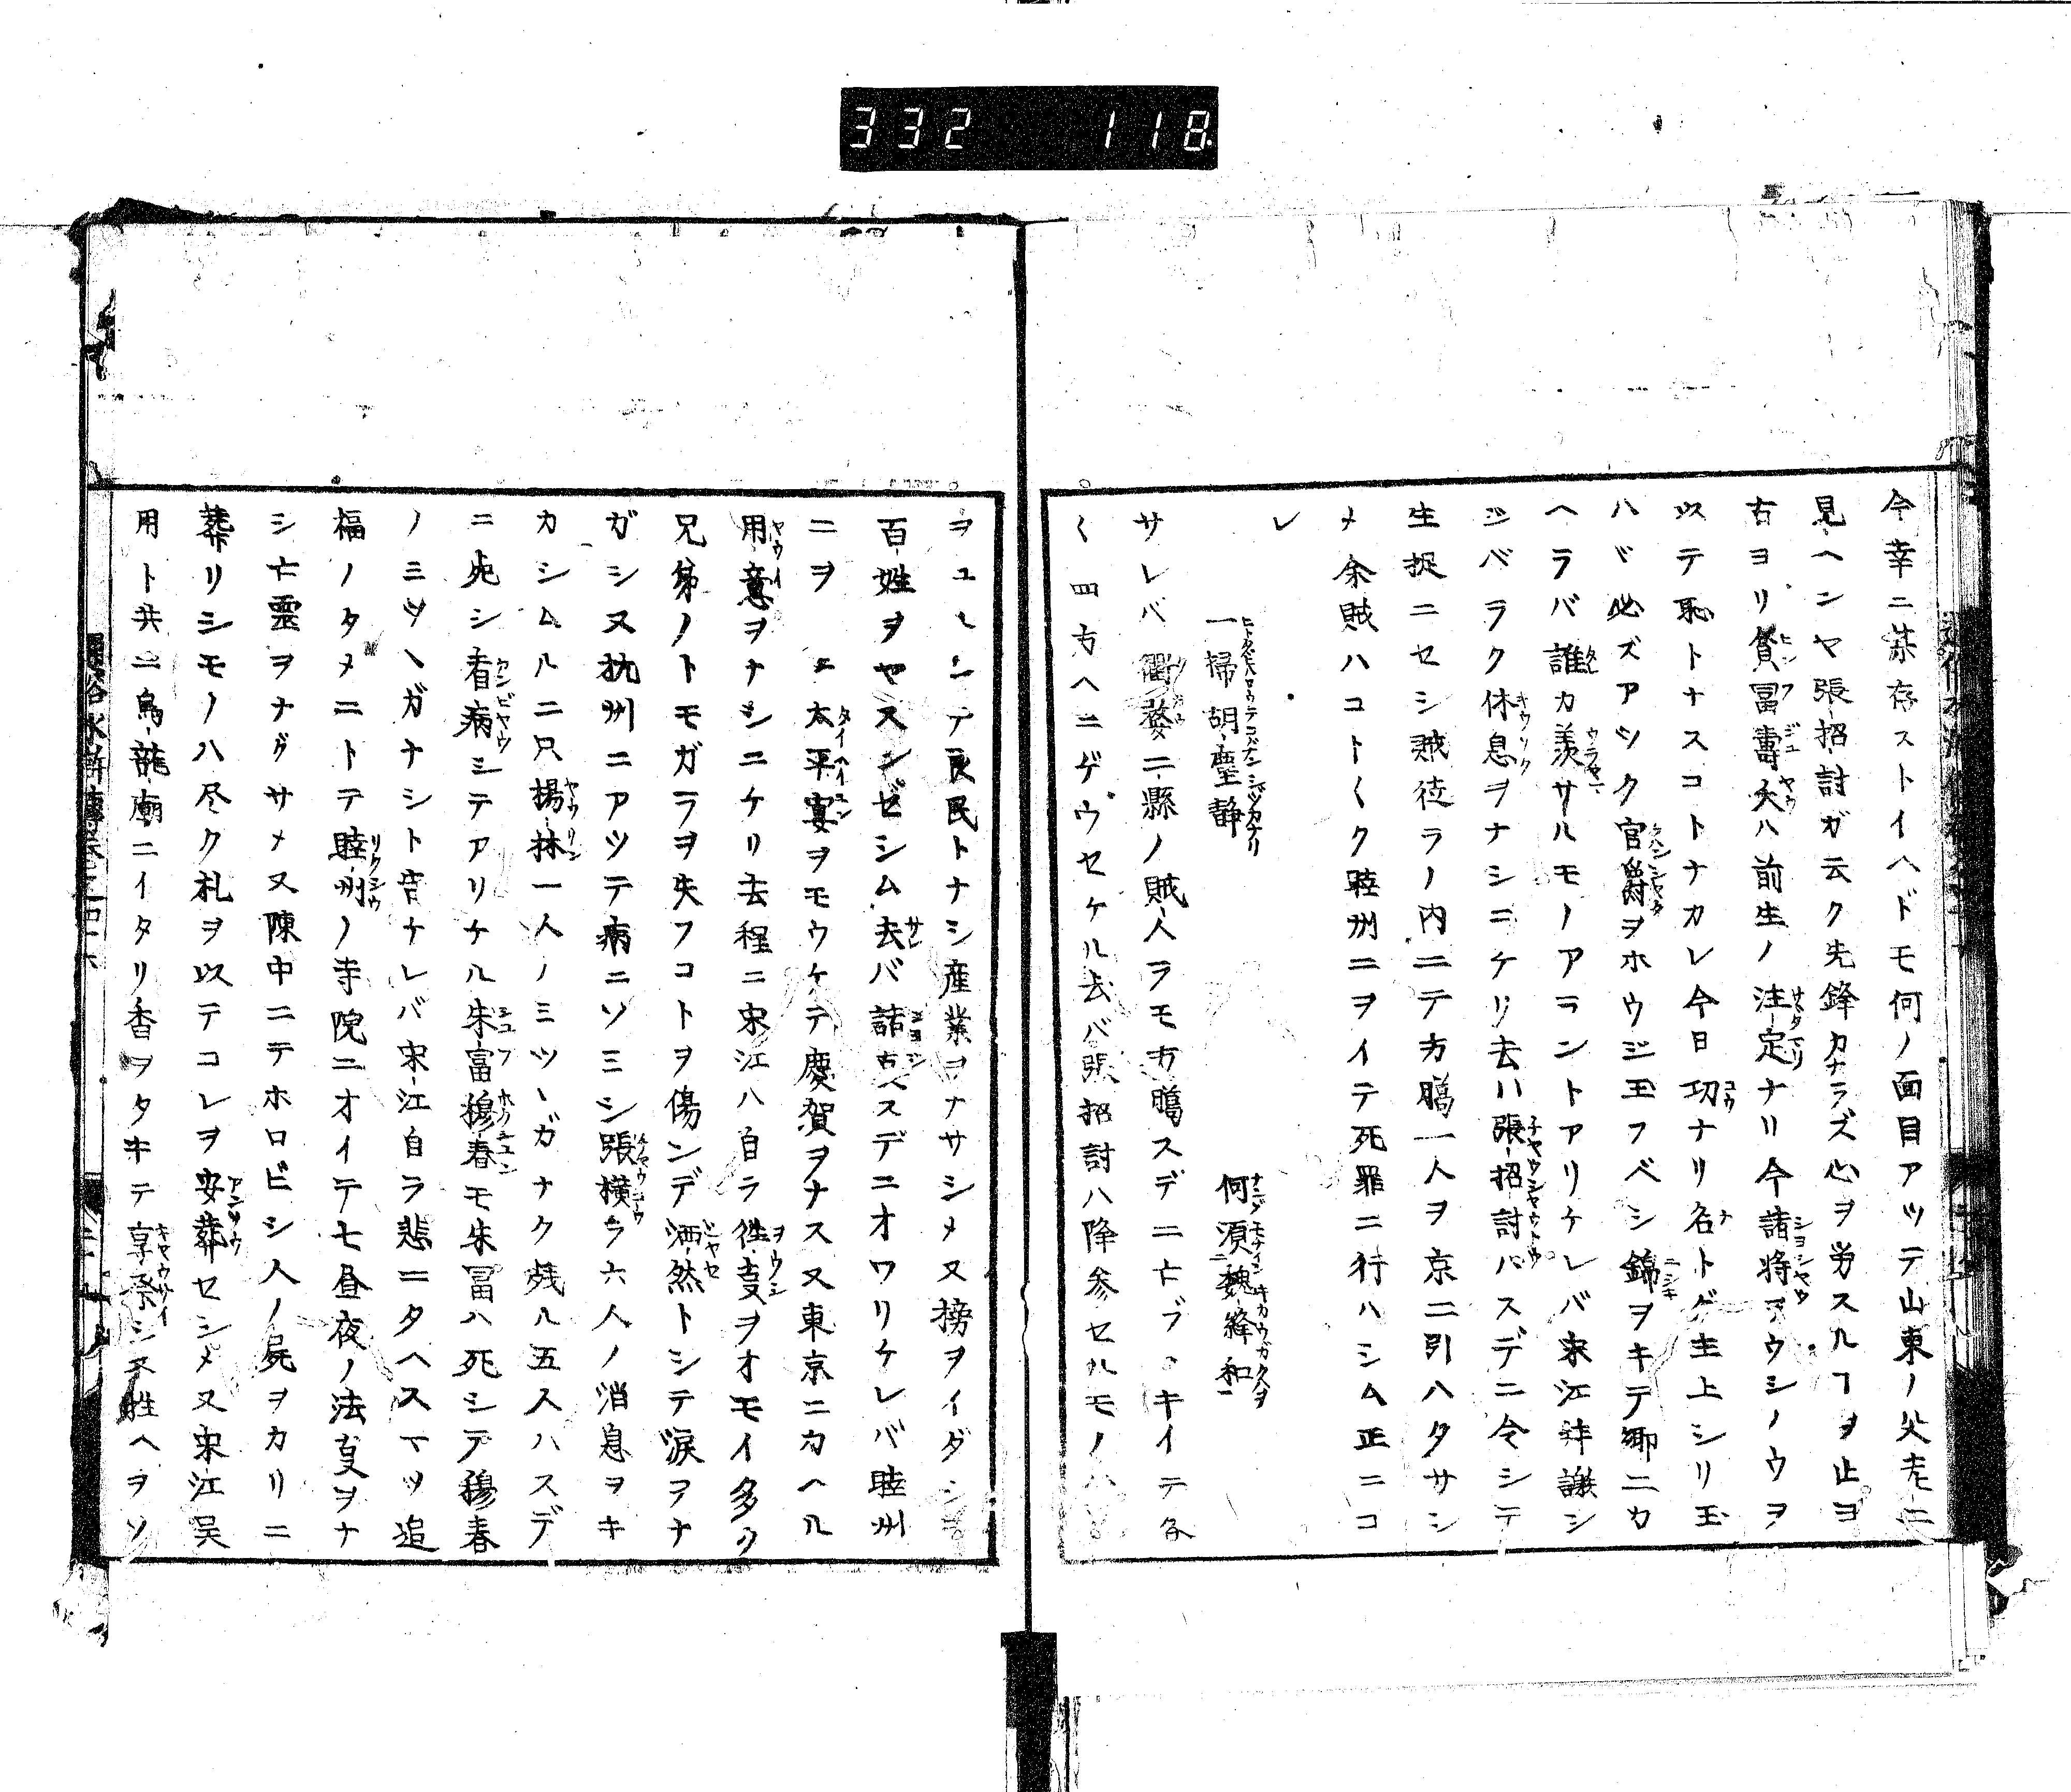 332 118
今幸ニ某存ストイヘドモ何ノ面目アツテ山東ノ父老ニ
見ヘンヤ張招討ガ云ク先鋒カナラズ心ヲ労スルヿヲ止ヨ
古ヨリ貧冨壽夭ハ前生ノ注定ナリ今諸将ヲウシノウヲ
以テ恥トナスコトナカレ今日功ナリ名トゲ主上シリ玉
ハヾ必ズアツク官爵ヲホウジ玉フベシ錦ヲキテ郷ニカ
ヘラバ誰カ羨サルモノアラントアリケレバ宋江拝謝シ
シバラク休息ヲナシニケリ去ハ張招討ハスデニ令シテ
生捉ニセシ賊徒ラノ内ニテ方臘一人ヲ京ニ引ハタサシ
メ余賊ハコト〱ク睦州ニヲイテ死罪ニ行ハシム正ニコ
レ
一掃胡塵静 何須魏絳和
サレバ衢婺ニ縣ノ賊人ラモ方臘スデニ亡ブヽキイテ各
〱四方ヘニゲウセケル去バ張招討ハ降参セルモノハ
ヲユルシテ良民トナシ産業ヲナサシメ又榜ヲイダシテ
百姓ヲヤスンゼシム去バ諸方スデニオワリケレバ睦州
ニヲヱ太平宴ヲモウケテ慶賀ヲナス又東京ニカヘル
用意ヲナシニケリ去程ニ宋江ハ自ラ徃支ヲオモイ多ク
兄弟ノトモガラヲ失フコトヲ傷ンデ洒然トシテ涙ヲナ
ガシ又抗州ニアツテ病ニソミシ張横ラ六人ノ消息ヲキ
カシムルニ只揚林一人ノミツヽガナク残ル五人ハスデ
ニ死シ看病シテアリケル朱富穆春モ朱冨ハ死シテ穆春
ノミツヽガナシト音ナレバ宋江自ラ悲ニタヘスマツ追
福ノタメニトテ睦州ノ寺院ニオイテ七昼夜ノ法支ヲナ
シ亡霊ヲナグサメ又陳中ニテホロビシ人ノ屍ヲカリニ
葬リシモノハ尽ク札ヲ以テコレヲ安葬セシメ又宋江呉
用ト共ニ烏龍廟ニイタリ香ヲタキテ享祭シ又牲ヘヲソ